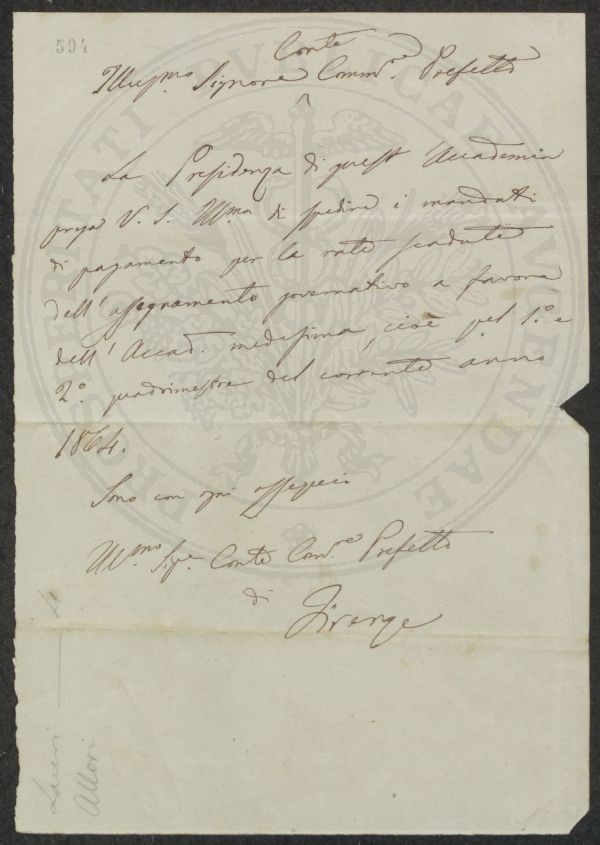 594
Conte
Illus.mo Signore Comm.re Prefetto
La Presidenza di quest'Accademia
prega V. S. Ill.ma di spedire i mandati
di pagamento per la rate scadute
dell'assegnamento governativo a favore
dell'Accad. medesima, cioè pel 1.o e
2.o quadrimestre del corrente anno
1864.
Sono con ogni
Ill.mo Sig.re Conte Com.re Prefetto
di
Firenze
Allori
PROSPERITATI PUBLICAE AUGENDAE